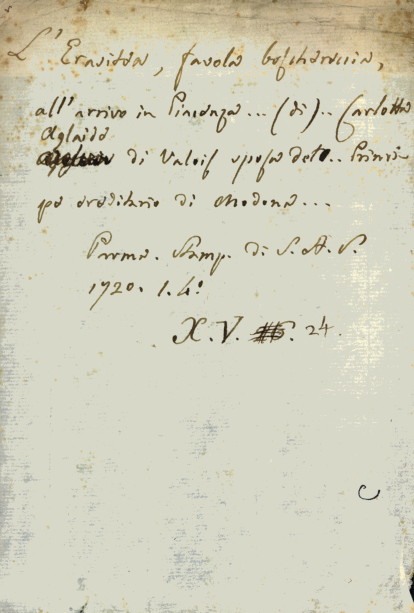 L'Eraclea, favola boschereccia,
all'arrivo in Piacenza ... (di) .. Carlotta
Aglaide
di Valois sposa del .. Princi-
pe ereditario di Modena ...
Parma. Stamp. di S. A. S.
1720. 1. 4.º
X. V. 24.